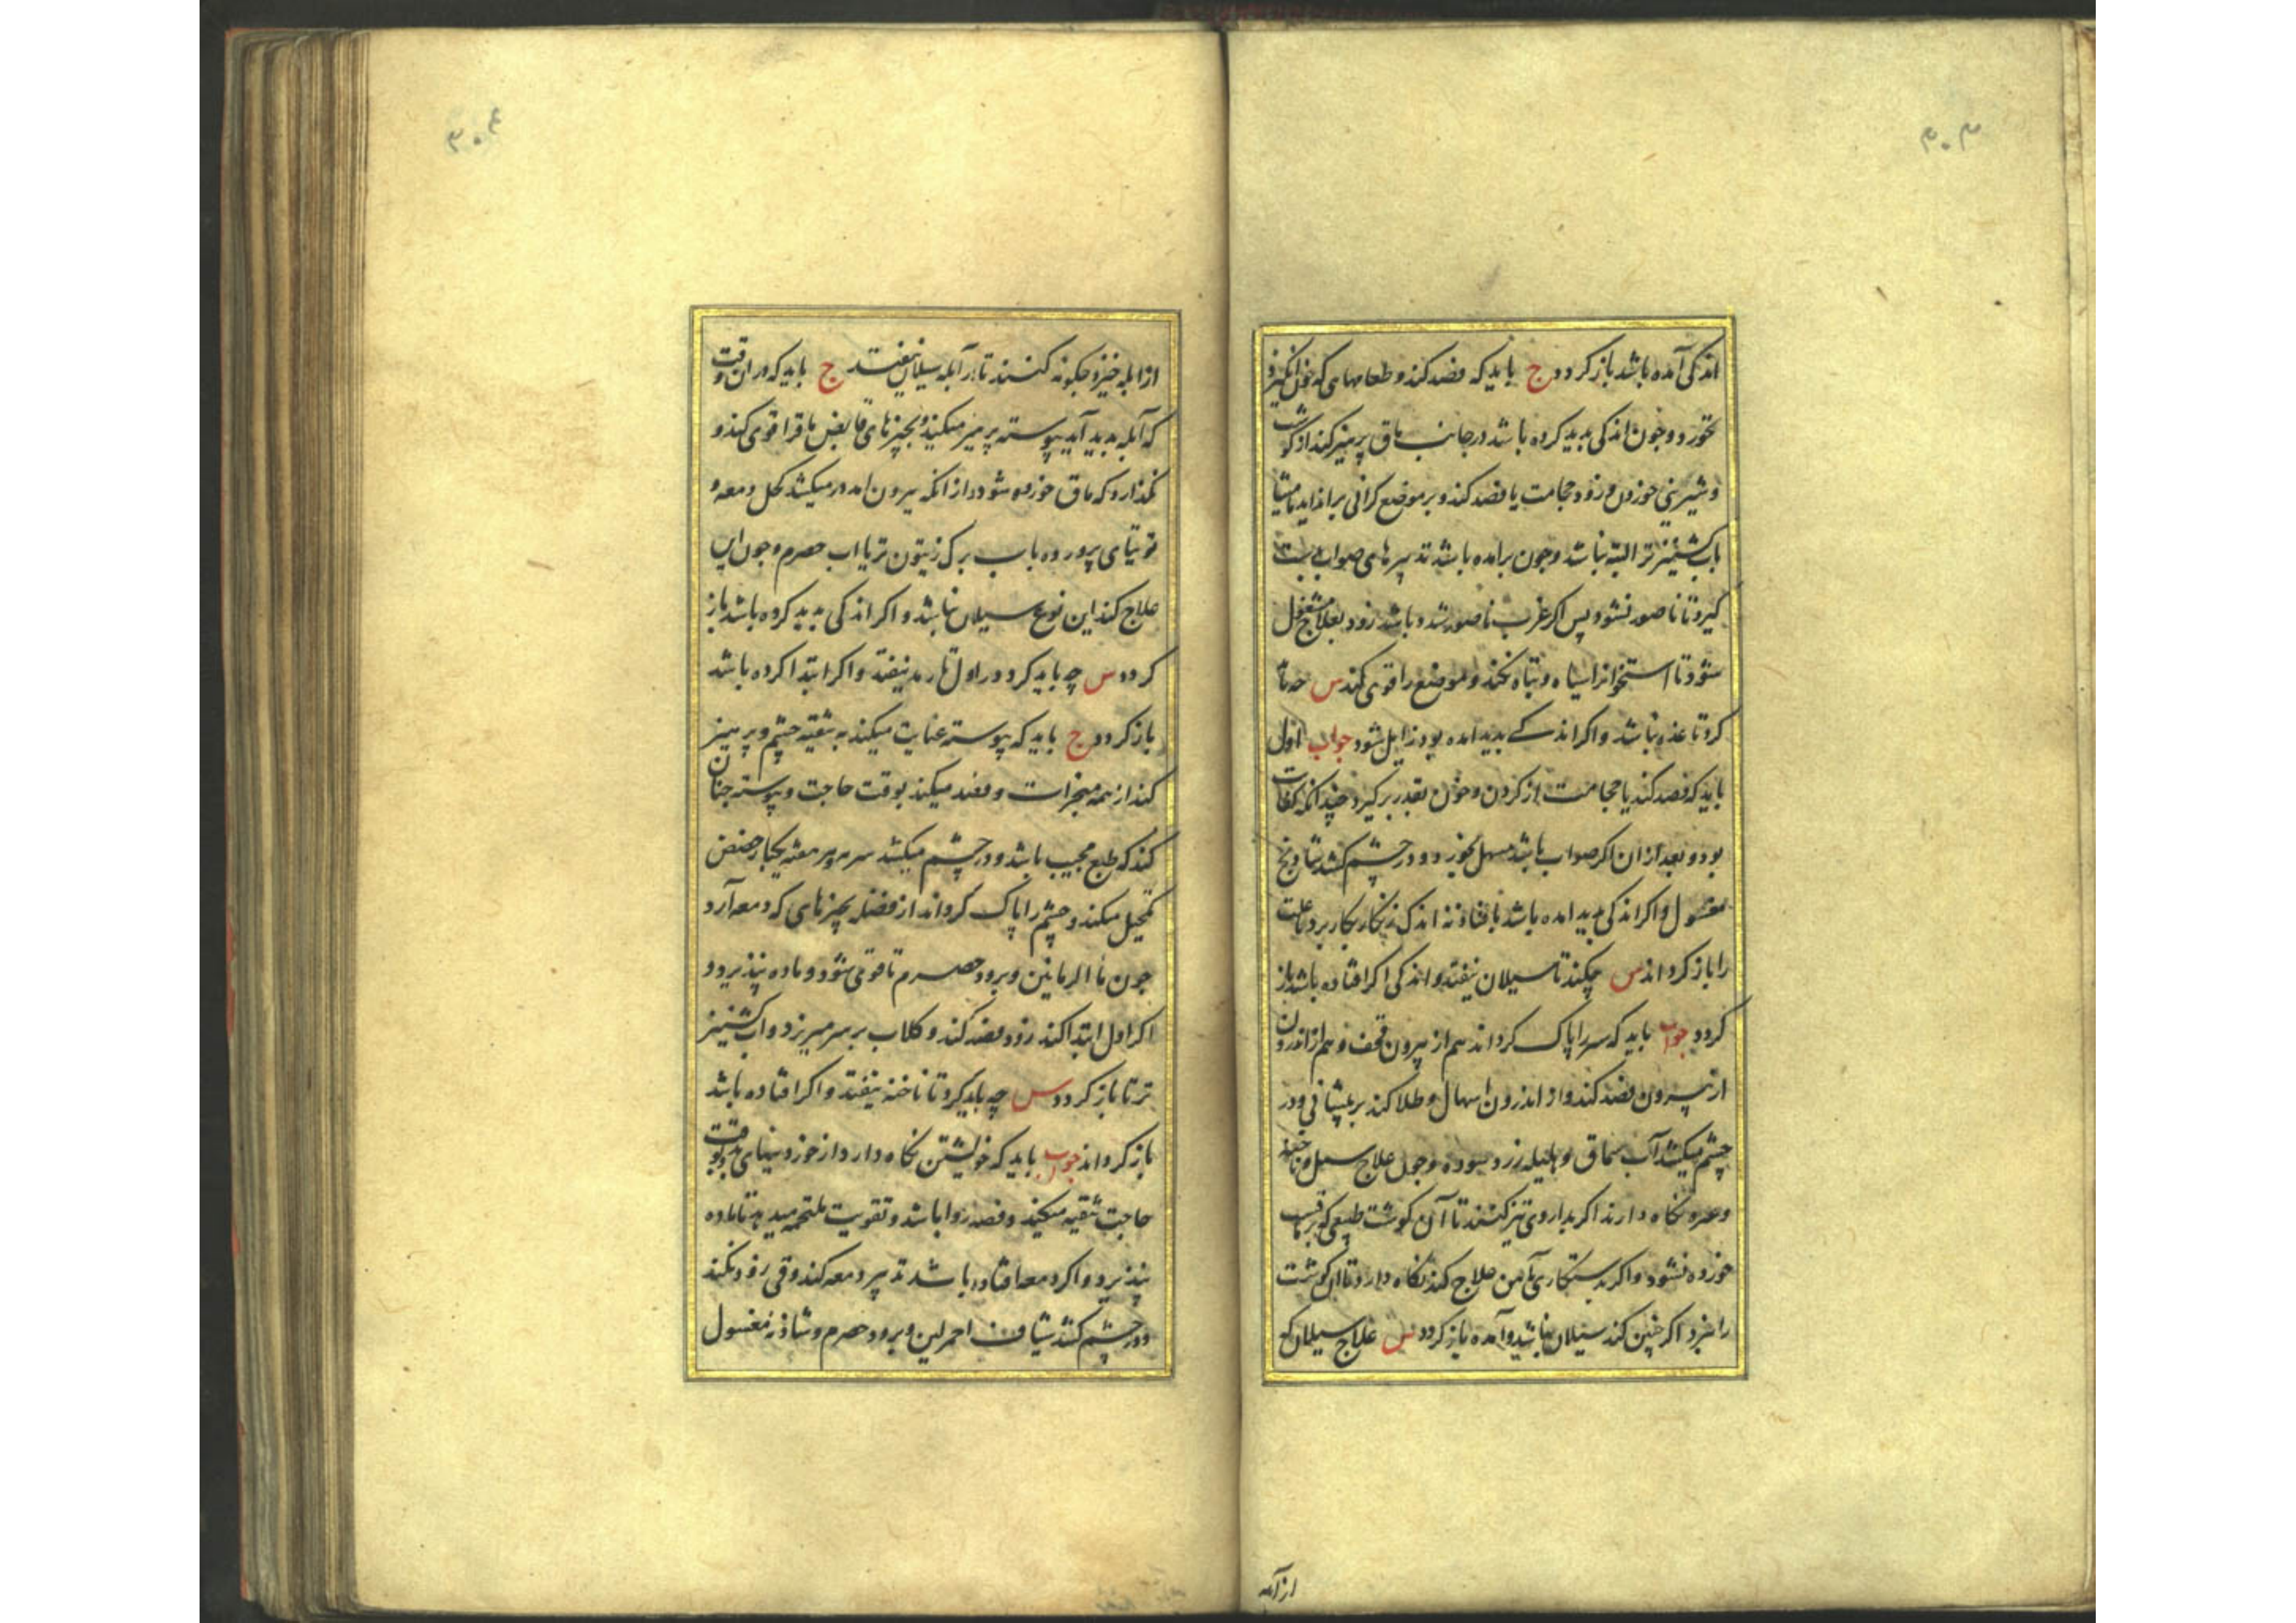 ۳۰۳
اندکی آمده باشد باز کردد ج باید که فصد کند و طعامهای که خون انکیزد
نخورد و جون اندکی بدید کرده باشد در جانب ماق پرهیز کند از کوشت
و شیرینی خوردن و زود حجامت یا فصد کند و بر موضع کرانی براندايد مامیثا
باب کشنیز تر البته نباشد و جون برامده باشد تدبیرهای صواب بدست
کیرد تا ناصور نشود پس اکر غرب ناصور شده باشد زود بعلاج مشغول
شود تا استخوانرا سیاه و تباه نکند و موضع را قوی کند س جه باید
کرد تا غده نباشد و اکر اندکے بدید امده بود زایل شود جواب اول
باید که فصد کند یا حجامت از کردن و خون بقدر برکیرد چندانکه کفایت
بود و بعد از ان اکر صواب باشد مسهل بخورد و در چشم کشد شادنج
مغسول و اکر اندکی بدید امده باشد اندک زنکار بکار برد تا علت
را باز کرداند س چکند تا سیلان نیفتد و اندکی اکر افتاده باشد باز
کردد جواب باید که سر را پاک کرداند هم از بیرون قحف و هم از اندرون
از بیرون فصد کند و از اندرون اسهال و طلا کند بر پیشانی و در
چشم میکشد آب سماق و هلیله زرد سوده و جون علاج سبل و ناخنه
و غیره نکاه دارند اکر بداروی تیز کنند تا آن کوشت طبیعی که بر ماقست
خورده نشود و اکر بدستکاری آهن علاج کند نکاه دارد تا ان کوشت
را نبرد اکر چنین کند سیلان نباشد و آمده باز کردد س علاج سیلان که
از آبله
۳۰۴
از ابله خیزد چکونه کنند تا از آبله سیلان نیفتد ج باید که در ان وقت
که آبله بدید آید پیوسته پرهیز میکند و بچیزهای قابض ماق را قوی کند و
نکذارد که ماق خورده شود و از انکه بیرون امد در میکشد کحل دمعه و
توتیای پرورده باب برک زیتون تر یا اب حصرم و جون این
علاج کند این نوع سیلان نباشد و اکر اندکی بدید کرده باشد باز
کردد س چه باید کرد در اول تا رمد نیفتد و اکر ابتدا کرده باشد
باز کردد ج باید که پیوسته عنایت میکند به تنقیه چشم و پرهیز
کند از همه مبخرات و فصد میکند بوقت حاجت و پیوسته چنان
کند که طبع مجیب باشد و در چشم میکشد هر هفته یکبار حضض
تکحیل میکند و چشم را پاک کرداند از فضله بچیزهای که دمعه آرد
جون ما الرمانین و برود حصرم تا قوی شود و ماده نپذیرد و
اکر اول ابتدا کند زود فصد کند و کلاب بر سر میریزد و اب کشنیز
تر تا باز کردد س چه باید کرد تا ناخنه نیفتد و اکر افتاده باشد
باز کرداند جواب باید که خویشتن نکاه دارد از خوردنیهای بد و بوقت
حاجت تنقیه میکند و فصد روا باشد و تقویت ملتحمه میدهد تا ماده
نپذیرد و اکر دمعه افتاده باشد تدبیر دمعه کند و قی زود نکند
و در چشم کشد شیاف احمر لین و برود حصرم و شادنه مغسول